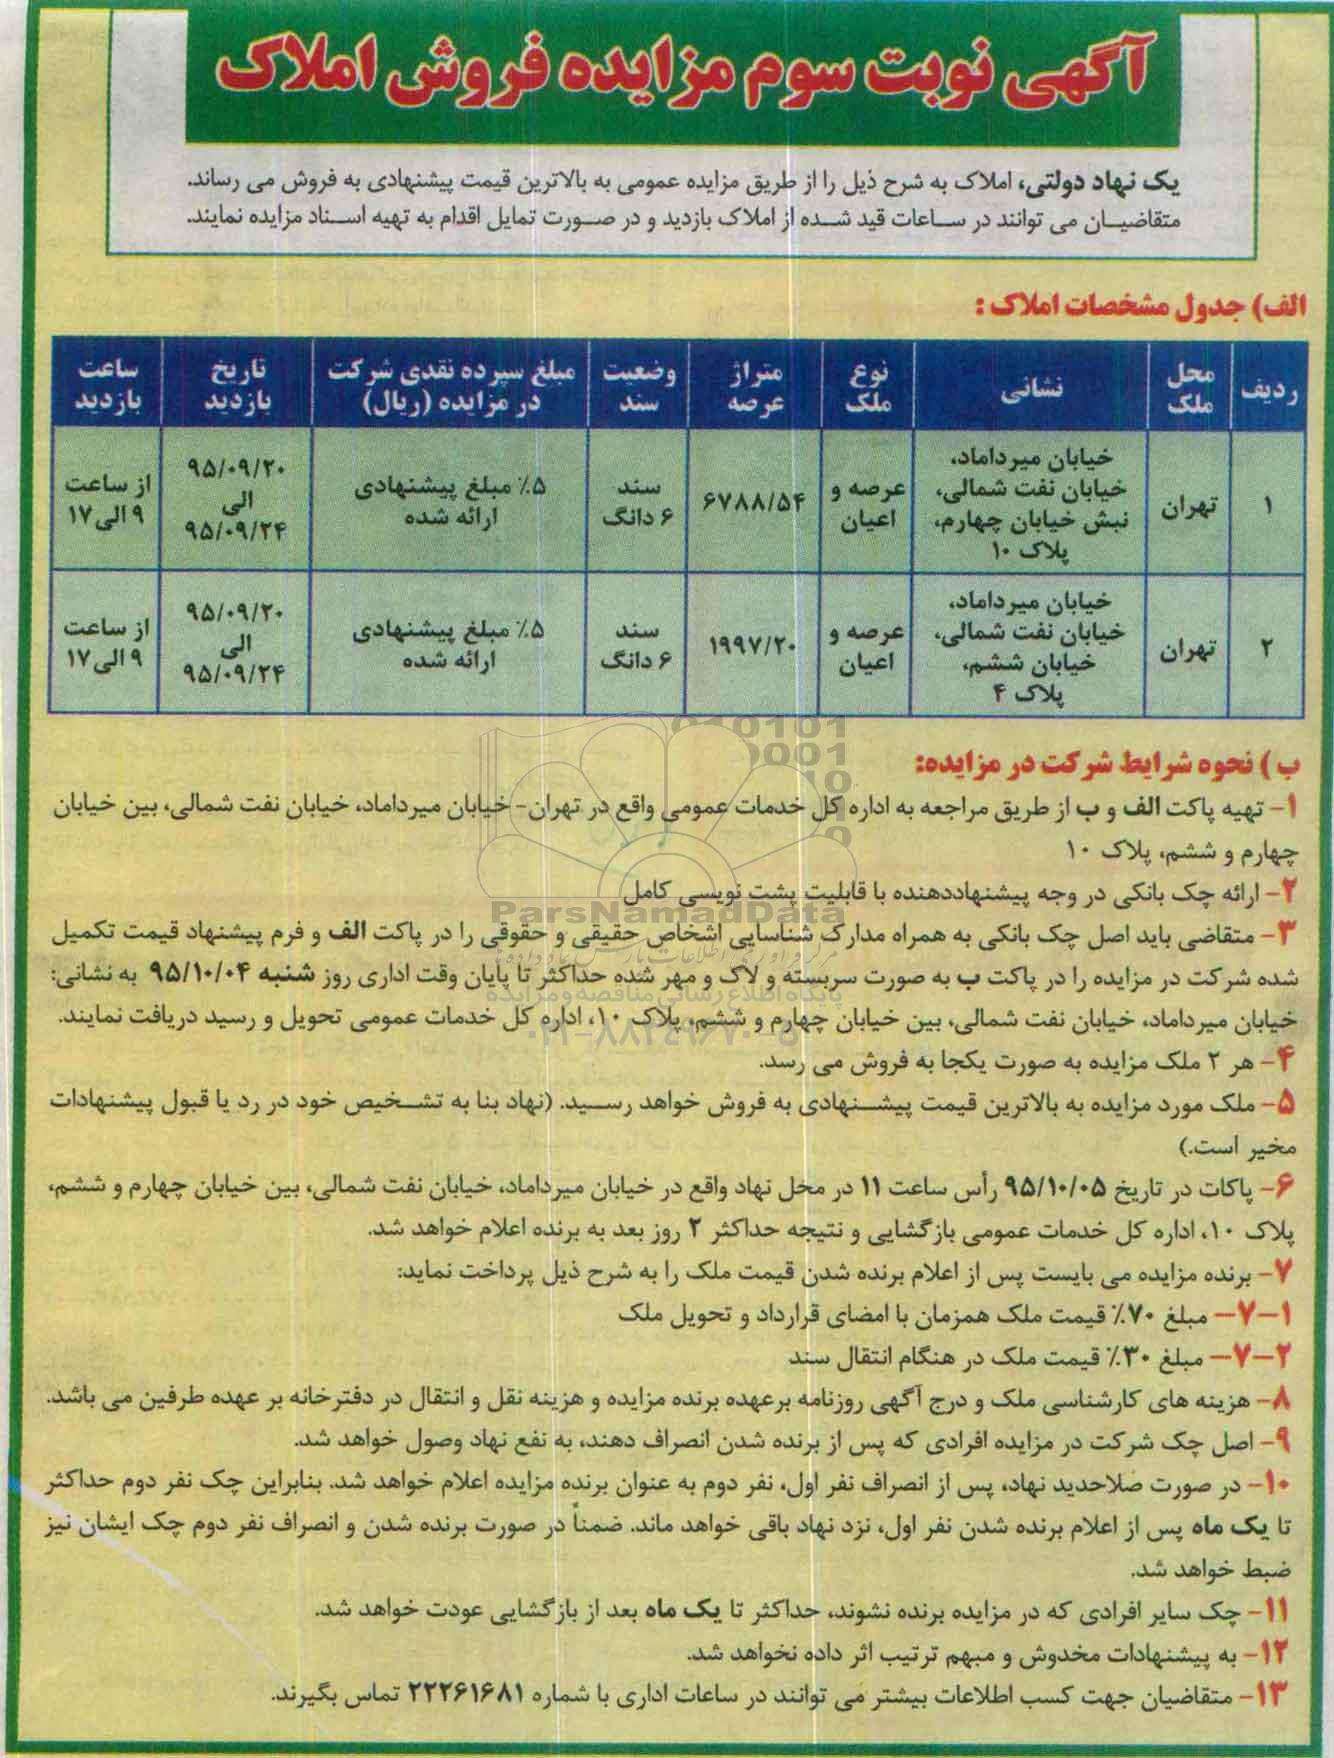 آگهی نوبت سوم مزایده فروش املاک
یک نهاد دولتی، املاک به شرح ذیل را از طریق مزایده عمومی به بالاترین قیمت پیشنهادی به فروش می رساند.
متقاضیان می توانند در ساعات قید شده از املاک بازدید و در صورت تمایل اقدام به تهیه اسناد مزایده نمایند.
الف) جدول مشخصات املاک :
ردیف | محل ملک | نشانی | نوع ملک | متراژ عرصه | وضعیت سند | مبلغ سپرده نقدی شرکت در مزایده (ریال) | تاریخ بازدید | ساعت بازدید
۱ | تهران | خیابان میرداماد، خیابان نفت شمالی، نبش خیابان چهارم، پلاک ۱۰ | عرصه و اعیان | ۶۷۸۸/۵۴ | سند ۶ دانگ | ۵٪ مبلغ پیشنهادی ارائه شده | ۹۵/۰۹/۲۰ الی ۹۵/۰۹/۲۴ | از ساعت ۹ الی ۱۷
۲ | تهران | خیابان میرداماد، خیابان نفت شمالی، خیابان ششم، پلاک ۴ | عرصه و اعیان | ۱۹۹۷/۲۰ | سند ۶ دانگ | ۵٪ مبلغ پیشنهادی ارائه شده | ۹۵/۰۹/۲۰ الی ۹۵/۰۹/۲۴ | از ساعت ۹ الی ۱۷
ب ) نحوه شرایط شرکت در مزایده:
۱- تهیه پاکت الف و ب از طریق مراجعه به اداره کل خدمات عمومی واقع در تهران- خیابان میرداماد، خیابان نفت شمالی، بین خیابان
چهارم و ششم، پلاک ۱۰
۲- ارائه چک بانکی در وجه پیشنهاددهنده با قابلیت پشت نویسی کامل
۳- متقاضی باید اصل چک بانکی به همراه مدارک شناسایی اشخاص حقیقی و حقوقی را در پاکت الف و فرم پیشنهاد قیمت تکمیل
شده شرکت در مزایده را در پاکت ب به صورت سربسته و لاک و مهر شده حداکثر تا پایان وقت اداری روز شنبه ۹۵/۱۰/۰۴ به نشانی:
خیابان میرداماد، خیابان نفت شمالی، بین خیابان چهارم و ششم، پلاک ۱۰، اداره کل خدمات عمومی تحویل و رسید دریافت نمایند.
۴- هر ۲ ملک مزایده به صورت یکجا به فروش می رسد.
۵- ملک مورد مزایده به بالاترین قیمت پیشنهادی به فروش خواهد رسید. (نهاد بنا به تشخیص خود در رد یا قبول پیشنهادات
مخیر است.)
۶- پاکات در تاریخ ۹۵/۱۰/۰۵ رأس ساعت ۱۱ در محل نهاد واقع در خیابان میرداماد، خیابان نفت شمالی، بین خیابان چهارم و ششم،
پلاک ۱۰، اداره کل خدمات عمومی بازگشایی و نتیجه حداکثر ۲ روز بعد به برنده اعلام خواهد شد.
۷- برنده مزایده می بایست پس از اعلام برنده شدن قیمت ملک را به شرح ذیل پرداخت نماید:
۷-۱- مبلغ ۷۰٪ قیمت ملک همزمان با امضای قرارداد و تحویل ملک
۷-۲- مبلغ ۳۰٪ قیمت ملک در هنگام انتقال سند
۸- هزینه های کارشناسی ملک و درج آگهی روزنامه برعهده برنده مزایده و هزینه نقل و انتقال در دفترخانه بر عهده طرفین می باشد.
۹- اصل چک شرکت در مزایده افرادی که پس از برنده شدن انصراف دهند، به نفع نهاد وصول خواهد شد.
۱۰- در صورت صلاحدید نهاد، پس از انصراف نفر اول، نفر دوم به عنوان برنده مزایده اعلام خواهد شد. بنابراین چک نفر دوم حداکثر
تا یک ماه پس از اعلام برنده شدن نفر اول، نزد نهاد باقی خواهد ماند. ضمناً در صورت برنده شدن و انصراف نفر دوم چک ایشان نیز
ضبط خواهد شد.
۱۱- چک سایر افرادی که در مزایده برنده نشوند، حداکثر تا یک ماه بعد از بازگشایی عودت خواهد شد.
۱۲- به پیشنهادات مخدوش و مبهم ترتیب اثر داده نخواهد شد.
۱۳- متقاضیان جهت کسب اطلاعات بیشتر می توانند در ساعات اداری با شماره ۲۲۲۶۱۶۸۱ تماس بگیرند.
ParsNamadData
پایگاه اطلاع رسانی مناقصه و مزایده